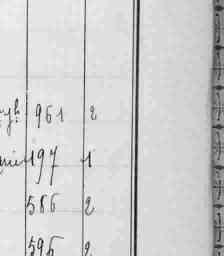 961 2
197 1
586 2
595 2